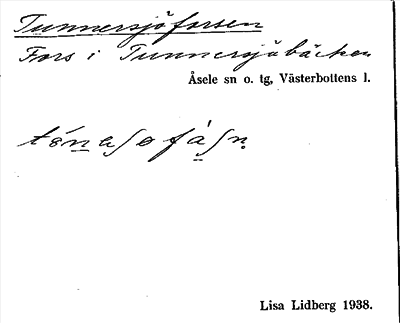 Tunnersjöforsen
Fors i Tunnersjöbäcken
Åsele sn o. tg, Västerbottens l.
Lisa Lidberg 1938.